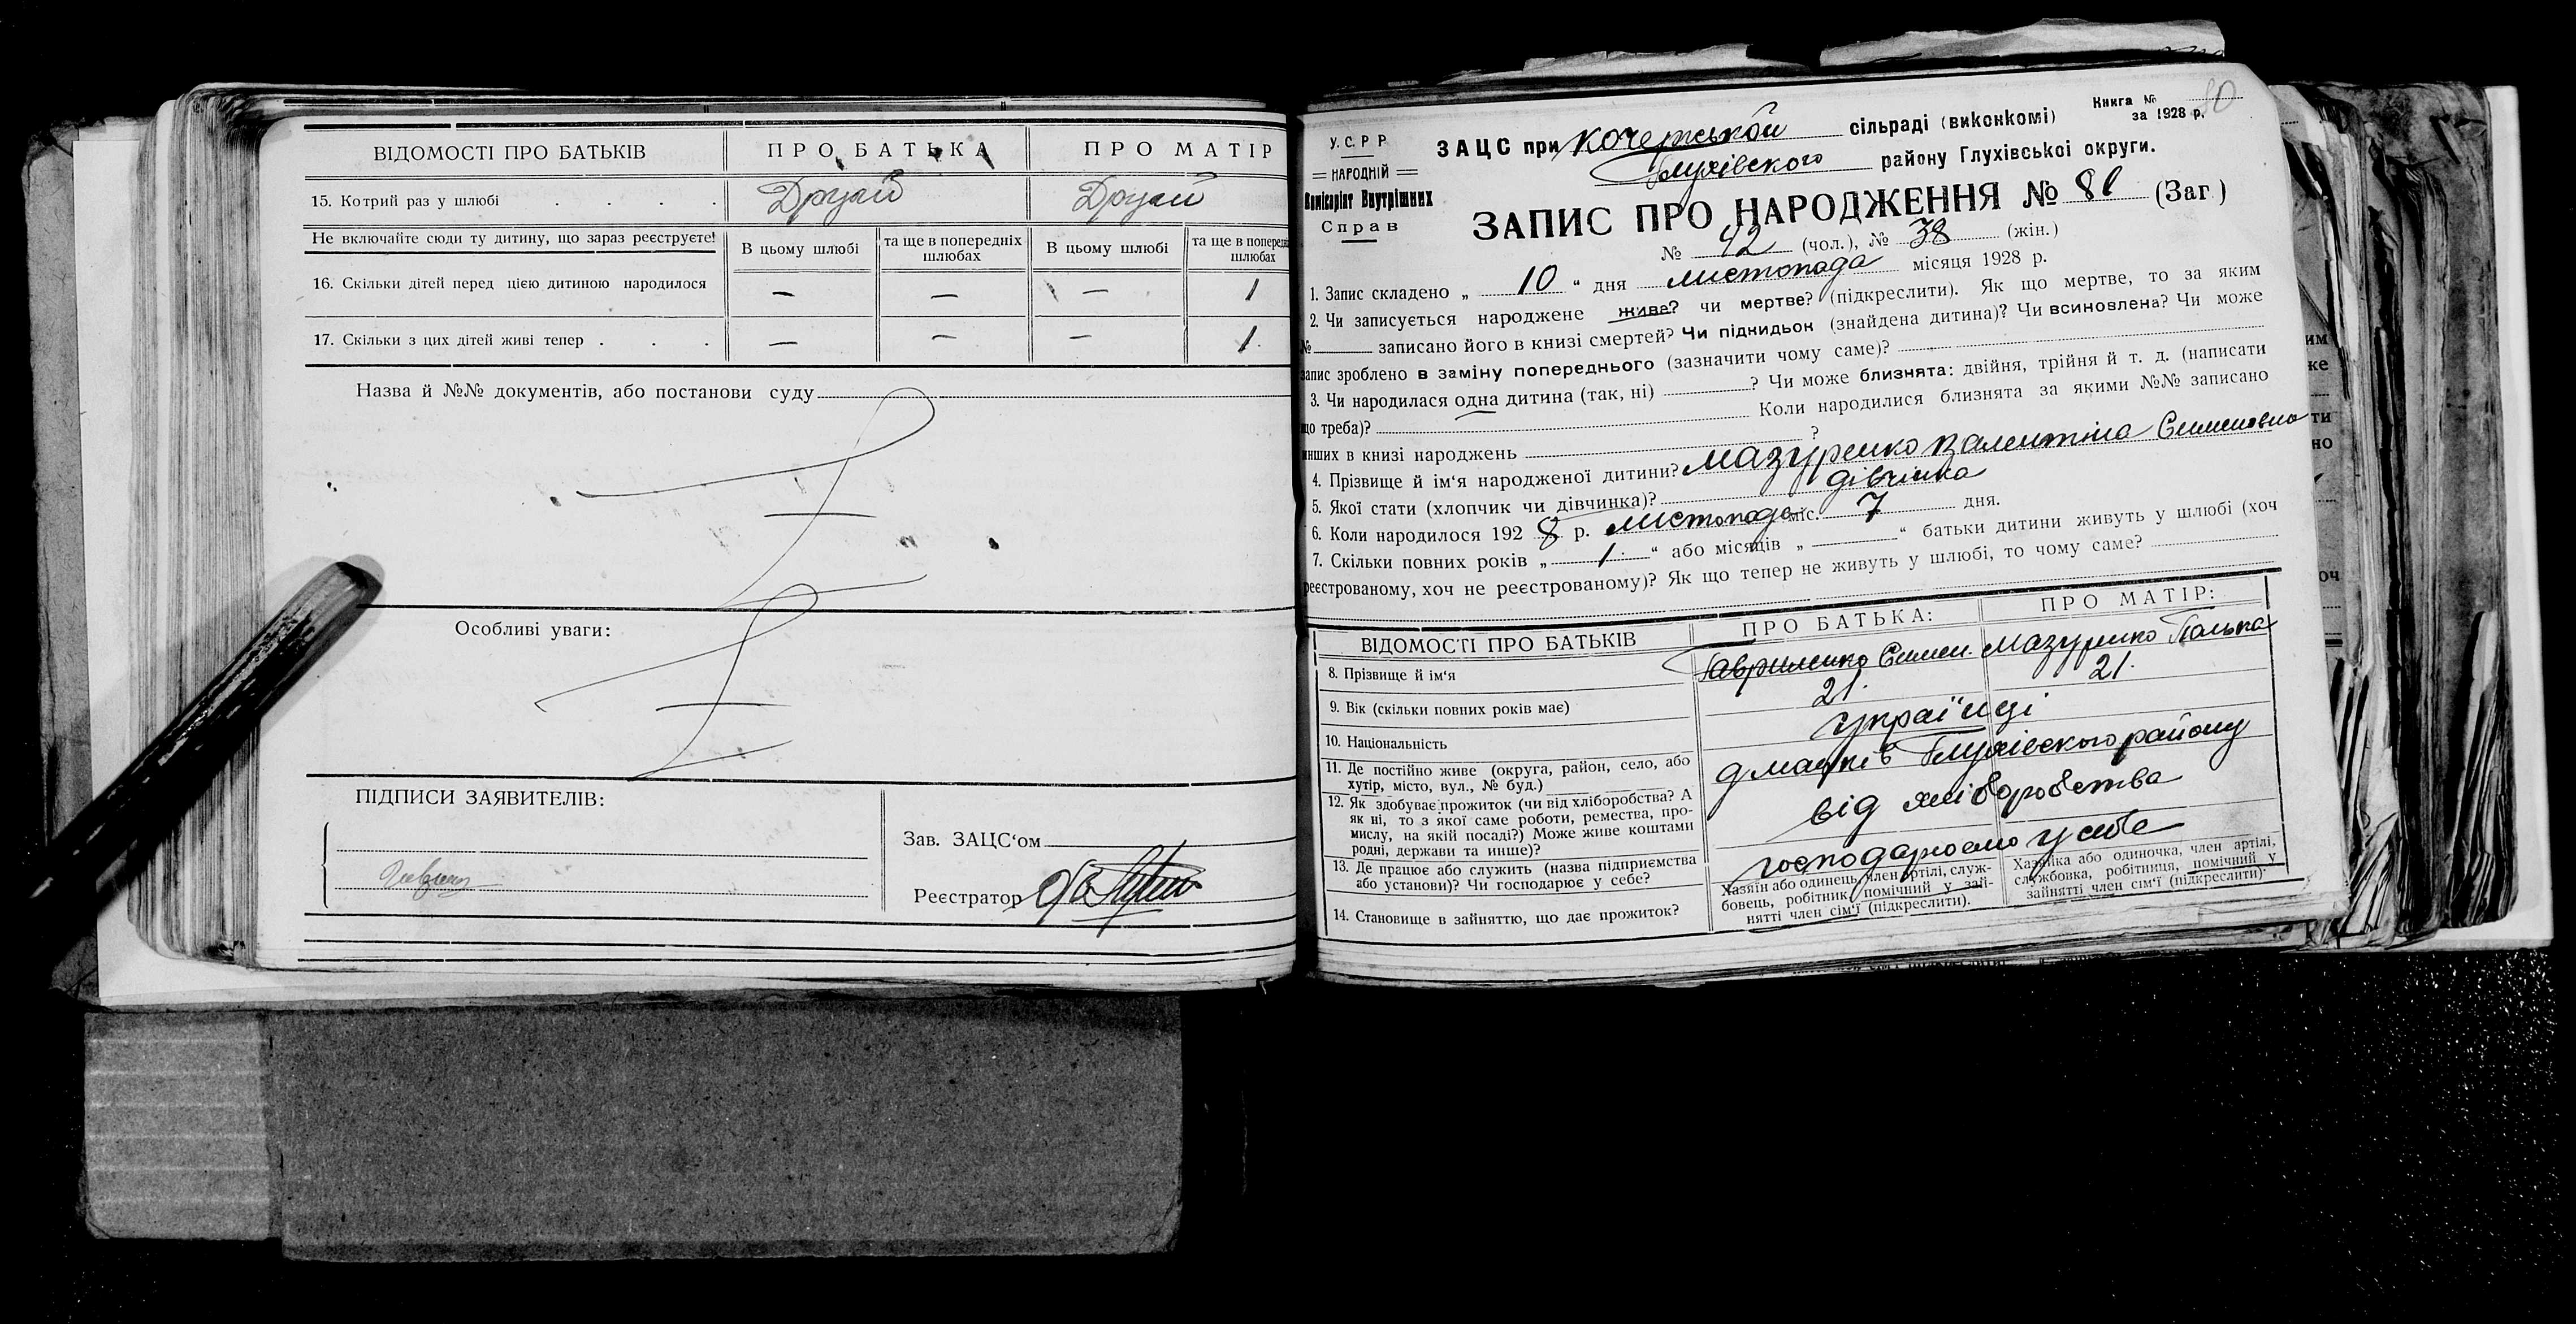 ВІДОМОСТІ ПРО БАТЬКІВ ПРО БАТЬКА ПРО МАТІР
15. Котрий раз у шлюбі . . . . Другий Другий
Не включайте сюди ту дитину, що зараз реєструєте! В цьому шлюбі та ще в попередніх шлюбах В цьому шлюбі та ще в попередніх шлюбах
16. Скільки дітей перед цією дитиною народилося — — — 1
17. Скільки з цих дітей живі тепер . . . — — — 1
Назва й №№ документів, або постанови суду
Особливі уваги:
ПІДПИСИ ЗАЯВИТЕЛІВ:
Зав. ЗАЦС‘ом
Реєстратор
Книга № 80
за 1928 р.
У.С.Р.Р.
НАРОДНІЙ
Комісаріят Внутрішних
Справ
ЗАЦС при сільраді (виконкомі)
Глухівского району Глухівської округи.
ЗАПИС ПРО НАРОДЖЕННЯ № (Заг)
№ 42 (чол.), № 38 (жін.)
1. Запис складено „ 10 “ дня листопада місяця 1928 р.
2. Чи записується народжене живе? чи мертве? (підкреслити). Як що мертве, то за яким
№ записано його в книзі смертей? Чи підкидьок (знайдена дитина)? Чи всиновлена? Чи може
запис зроблено в заміну попереднього (зазначити чому саме)?
3. Чи народилася одна дитина (так, ні) ? Чи може близнята: двійня, трійня й т. д. (написати
що треба)? Коли народилися близнята за якими №№ записано
инших в книзі народжень ?
4. Прізвище й ім‘я народженої дитини? Мазуренко Валентіна Семеновна
5. Якої статі (хлопчик чи дівчинка)? дівчинка
6. Коли народилося 192 8 р. листопада міс. 7 дня.
7. Скільки повних років „ 1 “ або місяців „ “ батьки дитини живуть у шлюбі (хоч
реєстрованому, хоч не реєстрованому)? Як що тепер не живуть у шлюбі, то чому саме?
ВІДОМОСТІ ПРО БАТЬКІВ ПРО БАТЬКА: ПРО МАТІР:
8. Прізвище й ім‘я Гавриленко Семен. Мазуренко Палька
9. Вік (скільки повних років має) 21. 21.
10. Національність українці
11. Де постійно живе (округа, район, село, або
хутір, місто, вул., № буд.) Глухівского району
12. Як здобуває прожиток (чи від хліборобства? А
як ні, то з якої саме роботи, ремества, про-
мислу, на якій посаді?) Може живе коштами
родні, держави та инше)? від хліборобства
13. Де працює або служить (назва підприємства
або установи)? Чи господарює у себе? господарюємо у себе
14. Становище в зайняттю, що дає прожиток?
Хазяїн або одинець, член артілі, служ-
бовець, робітник, помічний у зай-
нятті член сім‘ї (підкреслити).
Хазяйка або одиночка, член артілі,
службовка, робітниця, помічний у
зайнятті член сім‘ї (підкреслити).